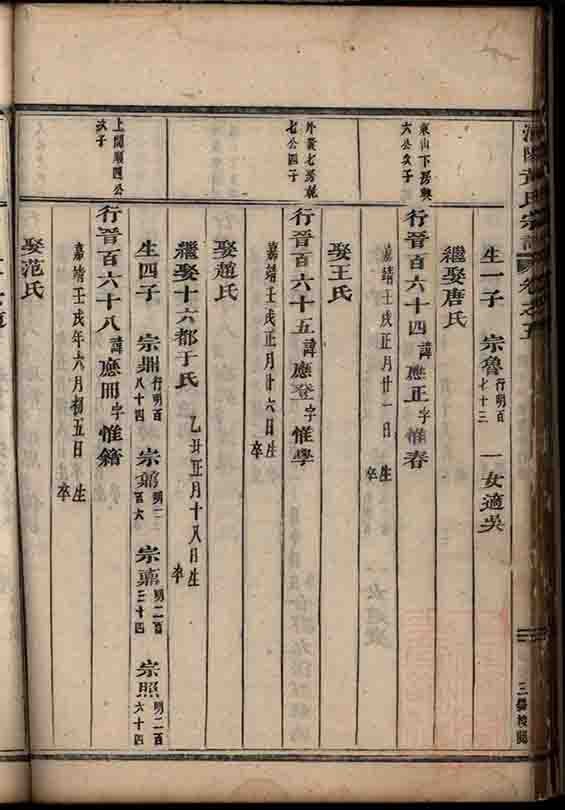 黃氏宗譜 卷之五
三學校閱
生一子 宗魯 行明百七十三 一女適吳
繼娶唐氏
東山下房興六公次子
行晉百六十四 諱應正 字惟春
嘉靖壬戌正月廿一日生 卒
娶王氏
外黃七房
七公四子
行晉百六十五 諱應登 字惟學
嘉靖壬戌正月廿六日生 卒
娶趙氏
繼娶十六都于氏 乙丑正月十八日生 卒
生四子 宗鼎 行明百八十四 宗鼐 宗鼒 明二百三十四 宗照 明二百六十四
上閣順四公次子
行晉百六十八 諱應冊 字惟籍
嘉靖壬戌年六月初五日生 卒
娶范氏